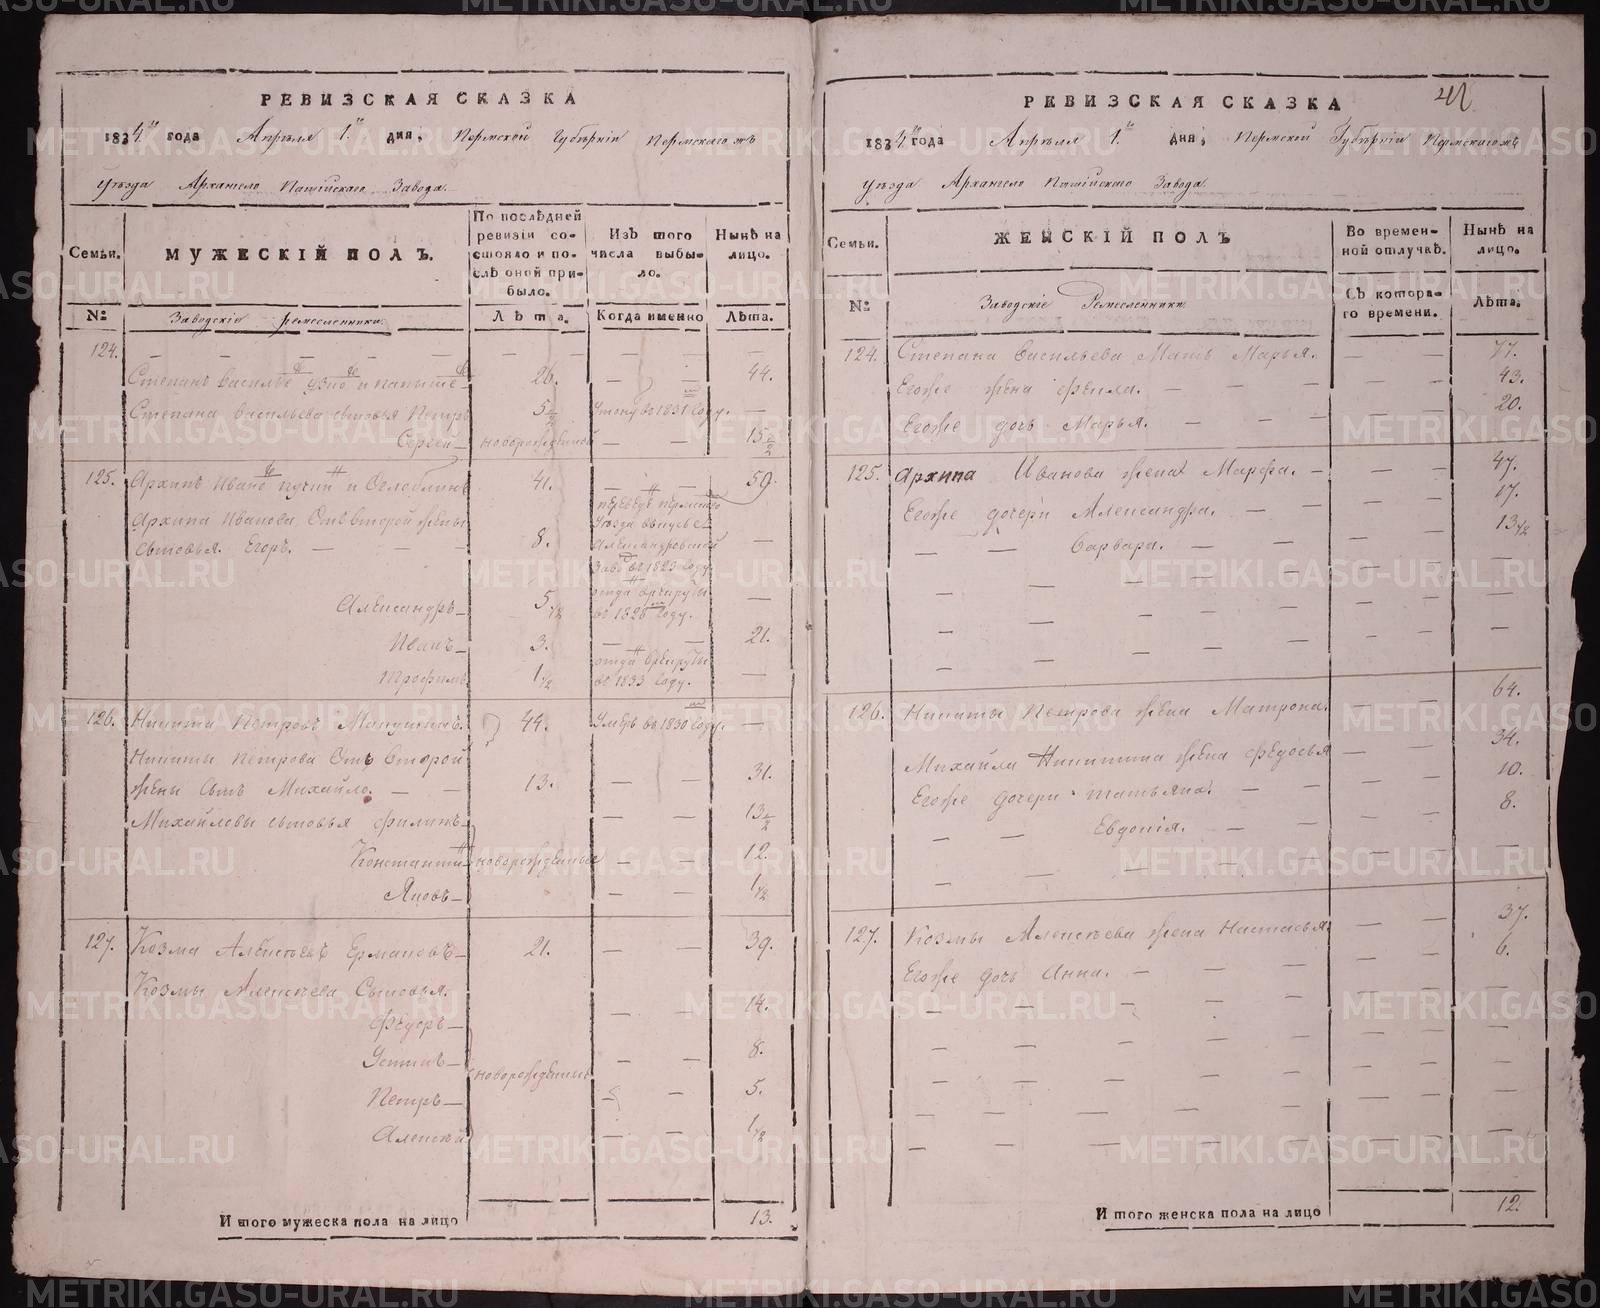 РЕВИЗСКАЯ СКАЗКА
1834го года Апреля 1го дня, Пермской Губернiи Пермскагожъ
уѣзда Архангело Пашiйскаго Завода.
Семьи.
МУЖЕСКIЙ ПОЛЪ.
По послѣдней ревизiи состояло и послѣ оной прибыло.
Изъ того числа выбыло.
Нынѣ на лицо.
№
Заводскiе ремесленники
Лѣта.
Когда именно
Лѣта.
124.
Степанъ Василье 26. — — 44.
Степана Васильева сыновья Петръ 5 1/2 въ 1831 году. —
Сергей — новорожденной — — 15 1/2
125. Архипъ Ивано 41. — — 59.
Архипа Иванова Отъ второй жены
сыновья. Егоръ. — — — 8. —
Александровской
Заво въ 1823 году
Александръ — 5 1/2 отда въ рекруты въ 1828 году. —
Иванъ — 3. — — 21.
Трофимъ 1 1/2 отда въ рекруты въ 1833 году. —
126. Никита Петровъ 44. умре въ 1830 году. —
Никиты Петрова Отъ Второй
жены сынъ Михайло. — — 13. — — 31.
Михайловы сыновья Филипъ — — — 13 1/2
Константи новорожденные — — 12.
Яковъ — — — 1 1/2
127. Козма Алексеевъ Ермаковъ — 21. — — 39.
Козмы Алексеева Сыновья.
Федоръ — — — 14.
Устинъ — — — 8.
новорожденные
Петръ — — — 5.
Алексей — — 1 1/2
Итого мужеска пола на лицо 13.
42
РЕВИЗСКАЯ СКАЗКА
1834го года Апреля 1го дня, Пермской Губернiи Пермскагожъ
уѣзда Архангело Пашiйскаго Завода.
Семьи.
ЖЕНСКIЙ ПОЛЪ
Во временной отлучкѣ.
Нынѣ на лицо.
№
Заводскiе Ремесленники
Съ котораго времени.
Лѣта.
124. Степана Васильева Мать Марья. — — 77.
Егоже жена Фекла. — — — — — 43.
Егоже дочь Марья. — — — — 20.
125. Архипа Иванова жена Марфа. — — — 47.
Егоже дочери Александра. — — — — 17.
— — Варвара. — — — — 13 1/2
126. Никиты Петрова жена Матрона. — — 64.
Михайли Никитина жена Федосья — — 34.
Егоже дочери Татьяна. — — — — 10.
— — Евдокiя. — — — — 8.
127. Козмы Алексеева жена Настасья. — — 37.
Егоже дочь Анна. — — — — — 6.
Итого женска пола на лицо 12.
METRIKI.GASO-URAL.RU